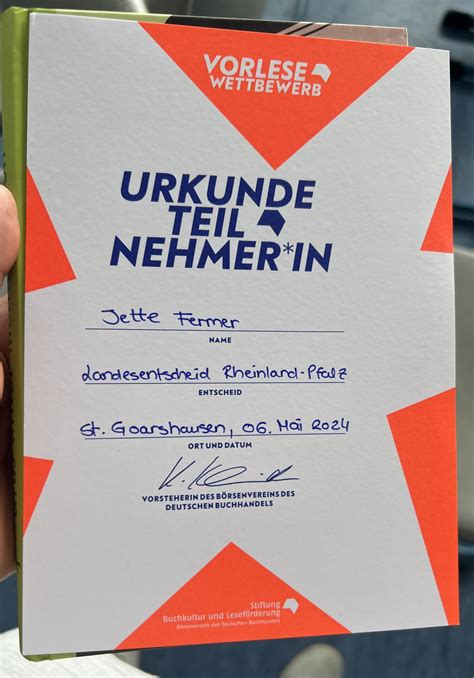 VORLESE
WETTBEWERB
URKUNDE
TEIL
NEHMER*IN
Jette Fermer
NAME
Landesentscheid Rheinland-Pfalz
ENTSCHEID
St. Goarshausen, 06. Mai 2024
ORT UND DATUM
VORSTEHERIN DES BÖRSENVEREINS DES
DEUTSCHEN BUCHHANDELS
Stiftung
Buchkultur und Leseförderung
Börsenverein des Deutschen Buchhandels